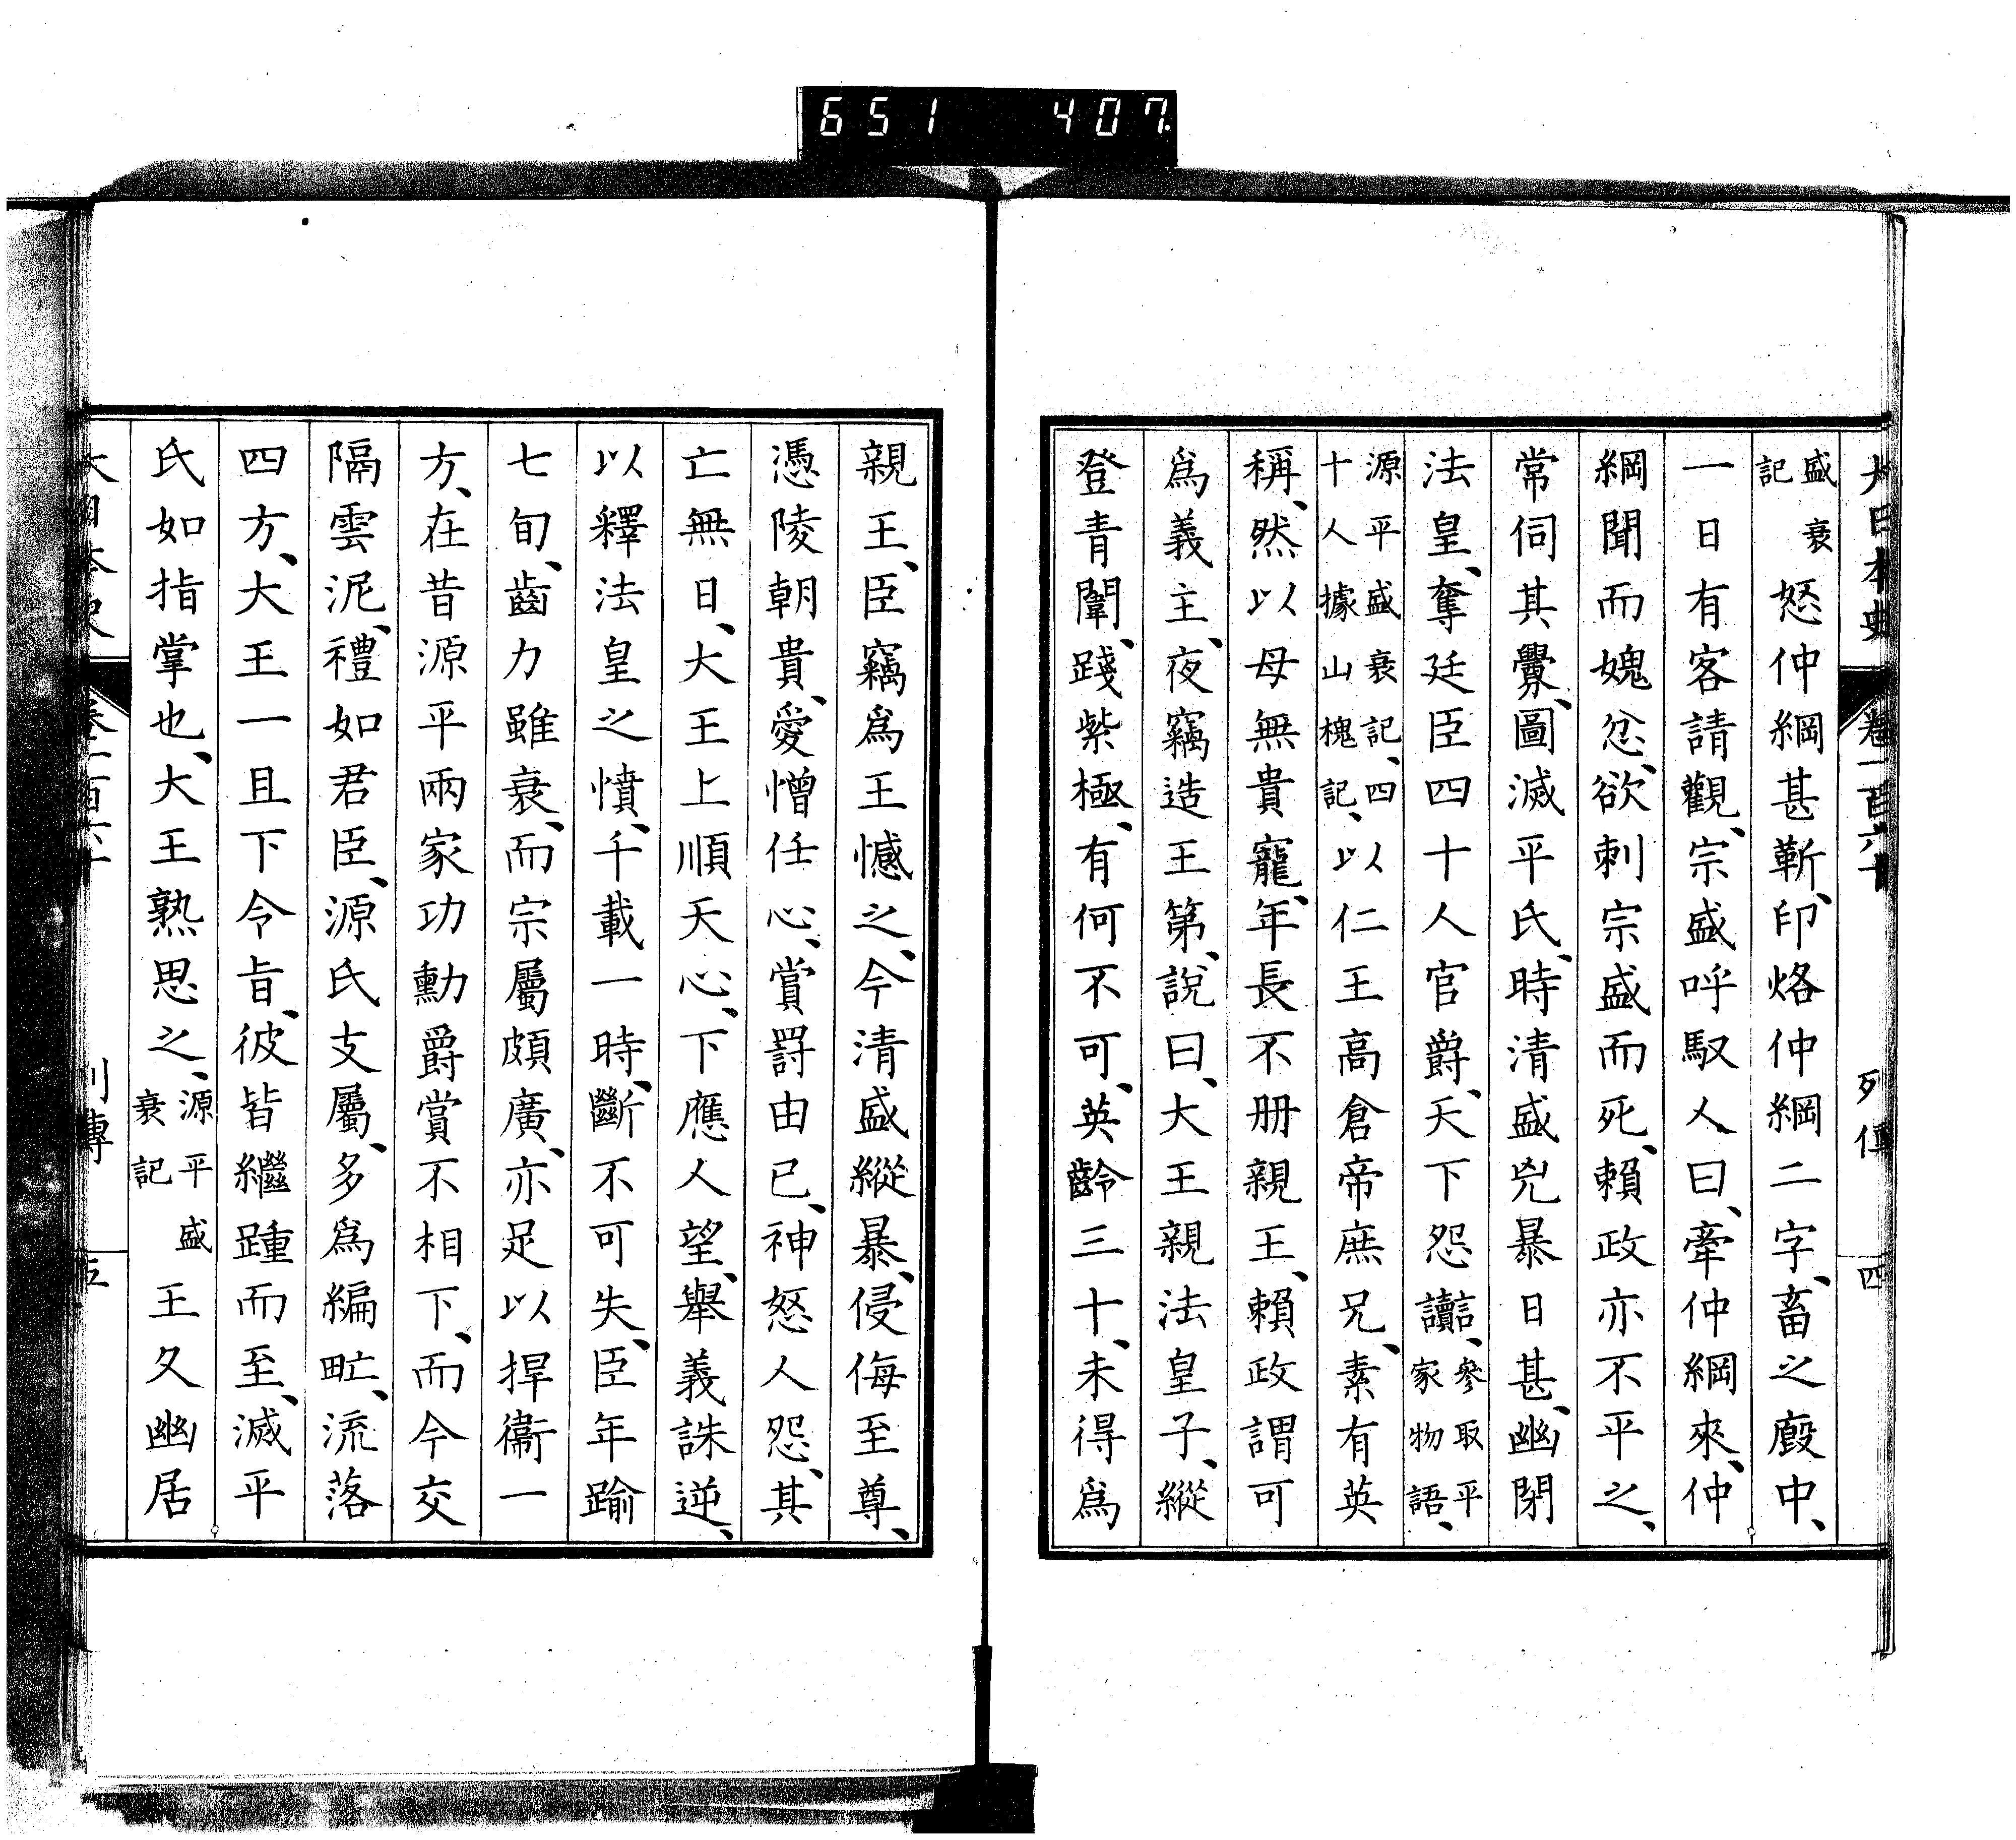 651 407
大日本史 卷一百六十 列傳 四
盛衰記怒仲綱甚靳、印烙仲綱二字、畜之廐中、
一日有客請觀、宗盛呼馭人曰、牽仲綱來、仲
綱聞而媿忿、欲刺宗盛而死、賴政亦不平之、
常伺其釁、圖滅平氏、時清盛兇暴日甚、幽閉
法皇、奪廷臣四十人官爵、天下怨讟、參取平家物語、言
源平盛衰記、四十人據山槐記、以仁王高倉帝庶兄、素有英
稱、然以母無貴寵、年長不册親王、賴政謂可
爲義主、夜竊造王第、說曰、大王親法皇子、縱
登青闈、踐紫極、有何不可、英齡三十、未得爲
親王、臣竊爲王憾之、今清盛縱暴、侵侮至尊、
憑陵朝貴、愛憎任心、賞罸由已、神怒人怨、其
亡無日、大王上順天心、下應人望、舉義誅逆、
以釋法皇之憤、千載一時、斷不可失、臣年踰
七旬、齒力雖衰、而宗屬頗廣、亦足以捍衞一
方、在昔源平兩家功勳爵賞不相下、而今交
隔雲泥、禮如君臣、源氏支屬、多爲編甿、流落
四方、大王一且下令旨、彼皆繼踵而至、滅平
氏如指掌也、大王熟思之、源平盛衰記王久幽居
大日本史 卷一百六十 列傳 五